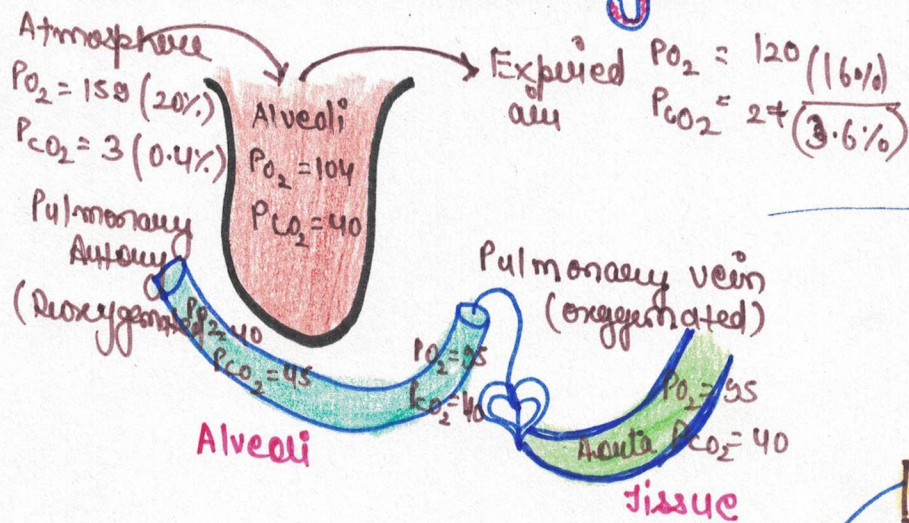 Atmosphere
PO₂ = 159 (20%)
PCO₂ = 3 (0.4%)
Alveoli
PO₂ = 104
PCO₂ = 40
Expired air
PO₂ = 120 (16%)
PCO₂ = 27 (3.6%)
Pulmonary
Artery
(Deoxygenated
PO₂ = 40
PCO₂ = 45
Pulmonary vein
(oxygenated)
PO₂ = 95
PCO₂ = 40
PO₂ = 95
Aorta PCO₂ = 40
Alveoli
Tissue